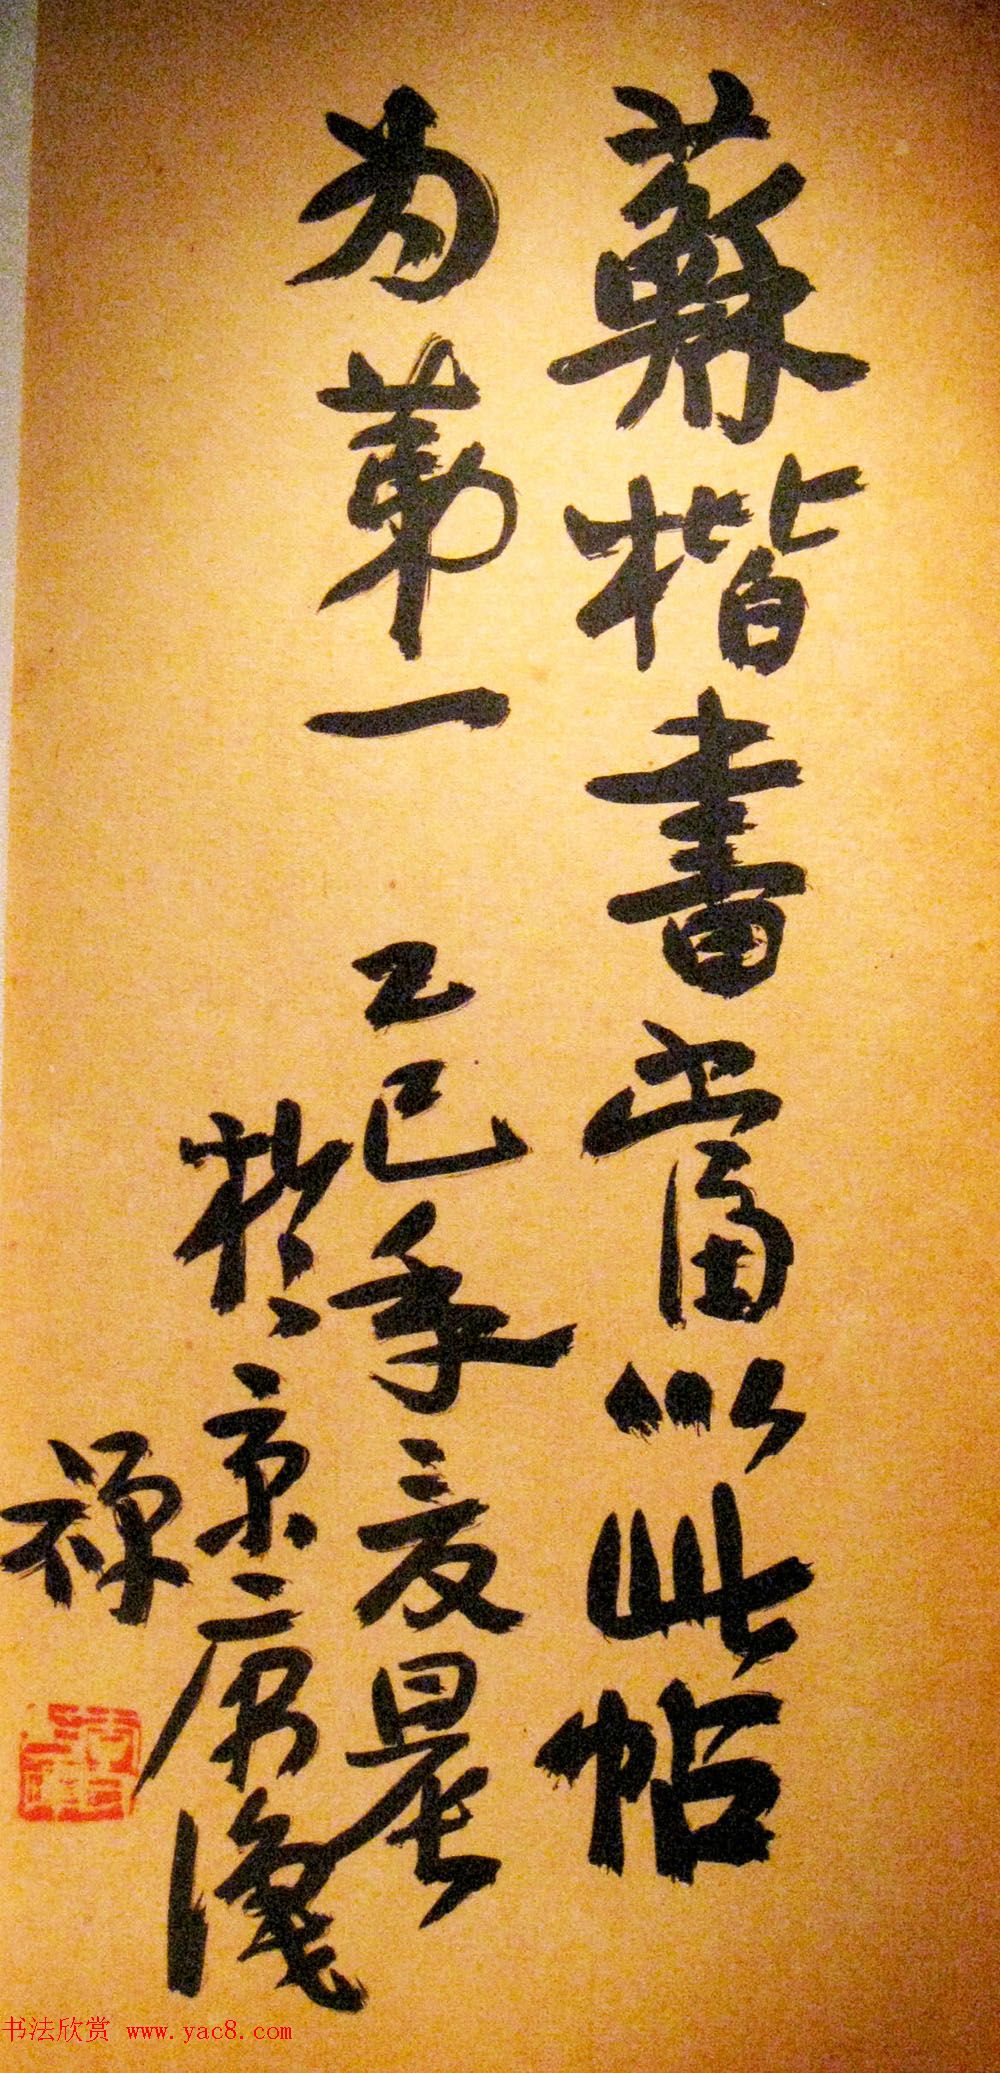 蘇楷書當以此帖
为第一 乙巳年夏晨
於京
禅
书法欣赏 www.yac8.com